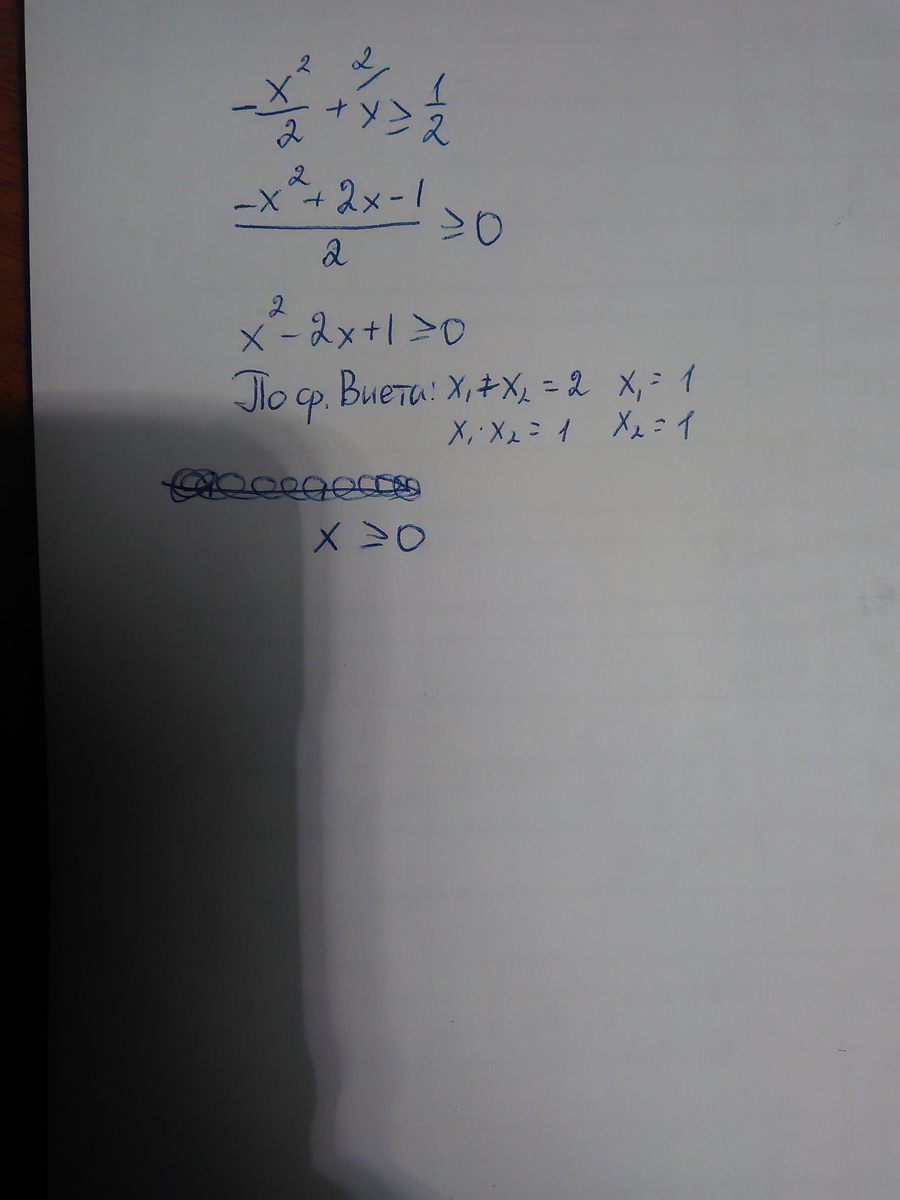 -x²/2 + x 2/ ≥ 1/2
(-x² + 2x - 1)/2 ≥ 0
x² - 2x + 1 ≥ 0
По ф. Виета: x₁ + x₂ = 2 x₁ = 1
x₁ · x₂ = 1 x₂ = 1
x ≥ 0